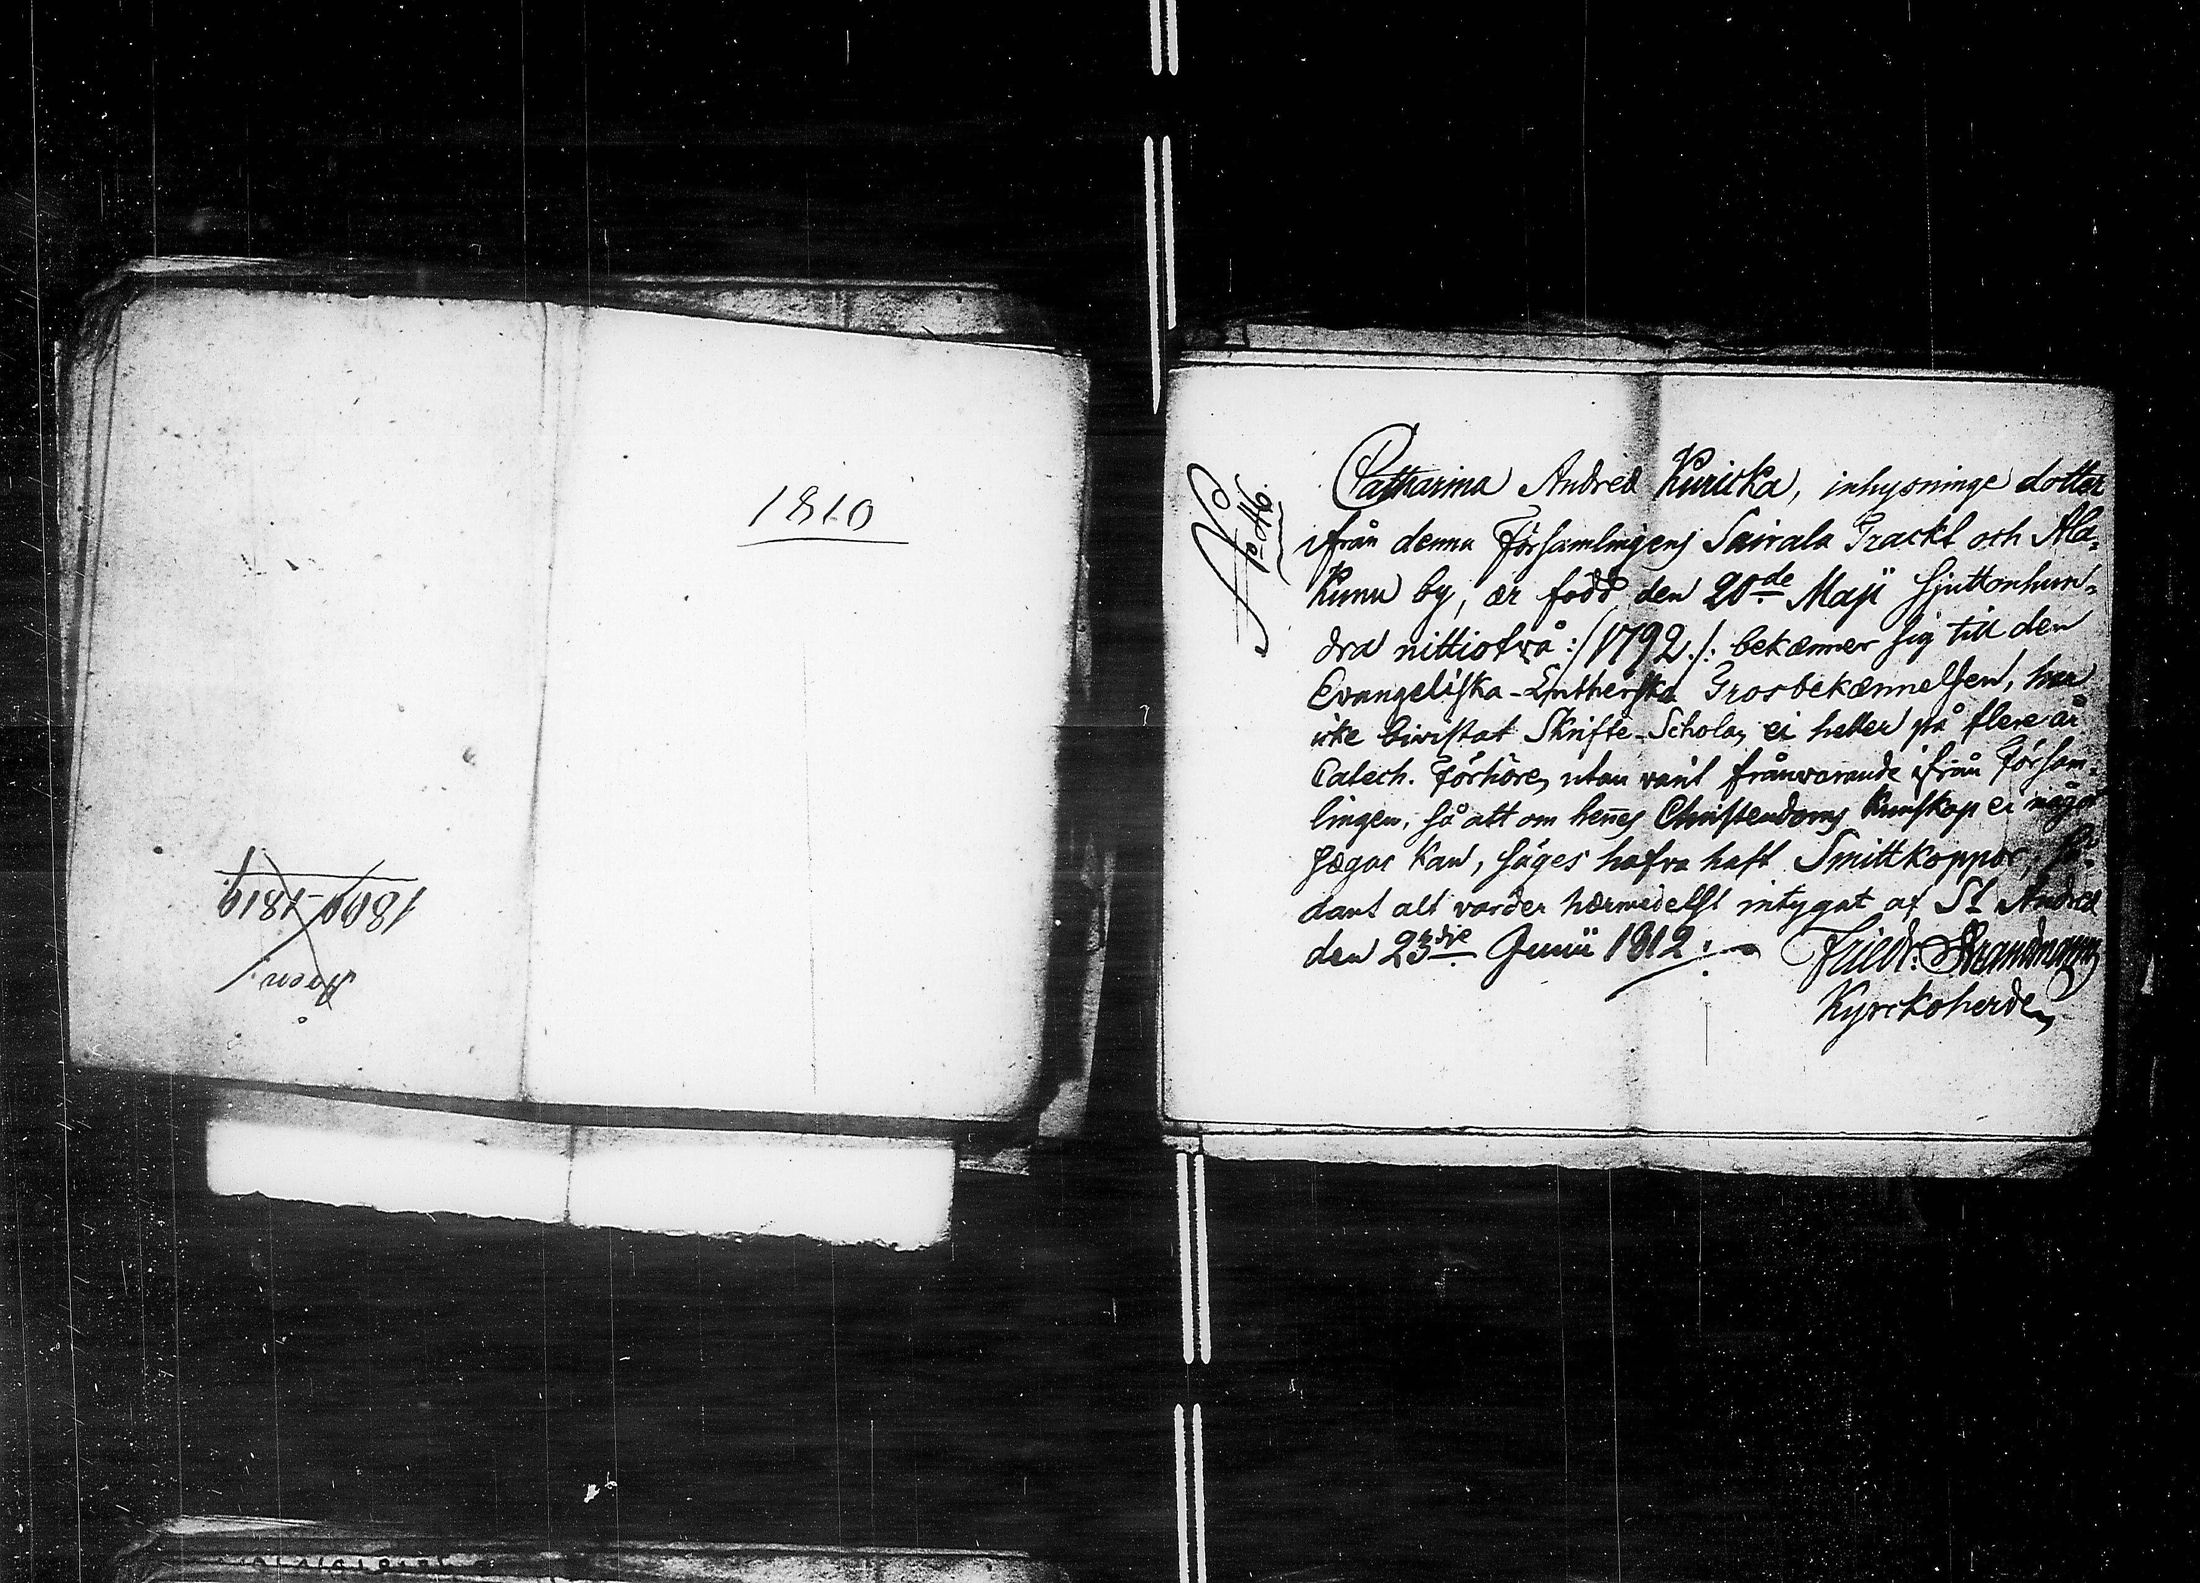 1810
1809-1819
No 46.
Catharina Andreæ Kuricka, inhysninge dotter
ifrån denna Församlingens Sairala Trackt och Ala-
Kunu by, ær född den 20de Maji sjuttonhun-
dra nittiotvå :/1792./: bekænner sig till den
Evangeliska-Lutherska Trosbekænnelsen, har
icke biwistat Skrifte-Schola, ei heller på flere år
Catech. Förhöre, utan varit frånvarande ifrån Försam-
lingen, så att om hennes Christendoms Kunskap ei något
sægas kan, säges hafva haft Smittkoppor, så-
dant alt varder hærmedelst intygat af St Andreæ
den 23dje Junii 1812.
Friedr: Strandmann
Kyrckoherde